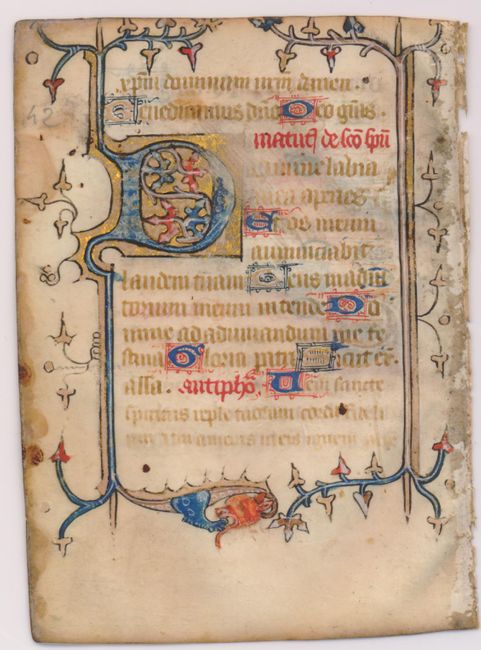 xpm dominum nrm amen.
Benedicamus dno Deo gras.
matut de sco spu
Domine labia
mea aperies
Et os meum
annunciabit
laudem tuam Deus in adiu
torium meum intende Do
mine ad adiuvandum me fe
stina Gloria patri Sicut er.
alla. antipho Veni sancte
spiritus reple tuorum corda fideli
um et tui amoris in eis ignem
42